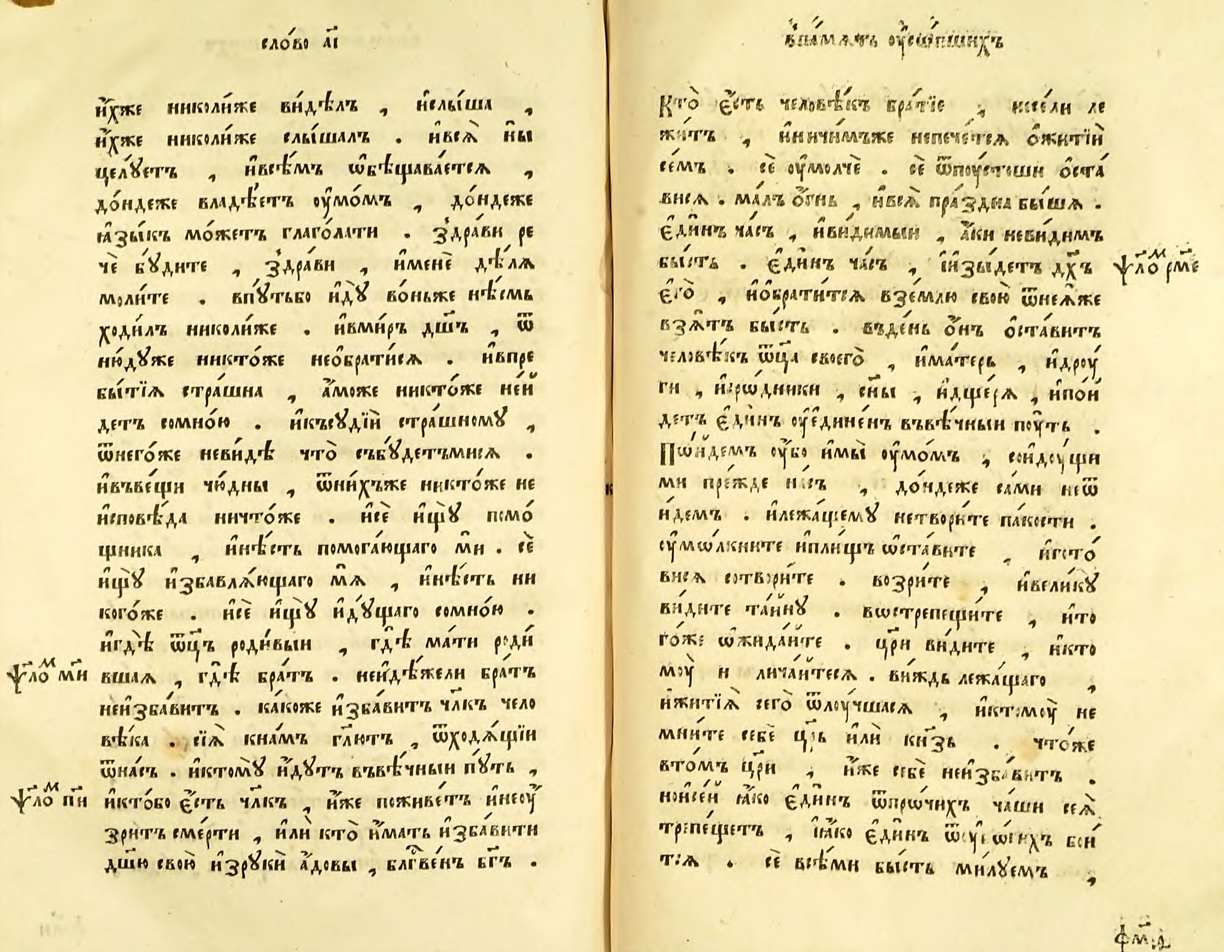 сло́во а҃і
и҆́хже николи́же ви́дѣлъ , и҆слы́ша ,
и҆́хже николи́же слы́шалъ . и҆вся̀ ны̀
цѣлꙋ́етъ , и҆всѣ́мъ ѡ҆бѣщава́ется ,
до́ндеже владѣ́етъ оу҆мо́мъ , до́ндеже
ꙗ҆зы́къ мо́жетъ глаго́лати . здра́ви ре
чѐ бꙋ́дите , здра́ви , и҆менѐ дѣ́ля
моли́те . впꙋ́тьбо и҆дꙋ̀ во́ньже нѣ́смь
ходи́лъ николи́же . и҆вми́ръ дш҃ъ , ѿ
ню́дꙋже никто́же необрати́ся . и҆впре
бытїѧ стра́шна , а҆́може никто́же неи҆
де́тъ сомно́ю . и҆късꙋдїи́ стра́шномꙋ ,
ѿнего́же неви́дѣ что̀ събꙋ́детъмися .
и҆въве́щи чю́дны , ѿни́хъже никто́же не
и҆сповѣ́да ничто́же . и҆сѐ и҆щꙋ̀ помо́
щника , и҆нѣ́сть помога́ющаго мѝ . сѐ
и҆щꙋ̀ и҆збавля́ющаго мя̀ , и҆нѣ́сть ни
кого́же . и҆сѐ и҆щꙋ̀ и҆дꙋ́щаго сомно́ю .
и҆гдѣ̀ ѻц҃ъ роди́выи , гдѣ̀ ма́ти роди́
ѱало́м ми вшая , гдѣ̀ бра́тъ . неи҆дѣ́жели бра́тъ
неи҆зба́витъ . ка́коже и҆зба́витъ чл҃къ чело
вѣ́ка . сїя̀ кна́мъ гл҃ютъ , ѿходя́щїи
ѿна́съ . и҆ктомꙋ̀ и҆дꙋ́тъ въвѣ́чныи пꙋ́ть ,
ѱало́м пи и҆кто́бо е҆́сть чл҃къ , и҆́же поживе́тъ и҆неоу҆́
зритъ сме́рти , и҆лѝ кто̀ и҆́мать и҆зба́вити
дш҃ю свою̀ и҆зрꙋкѝ а҆́довы , бл҃гве́нъ бг҃ъ .
впа́мять оу҆со́пшихъ
Кто̀ е҆́сть человѣ́къ бра́тїе , ле
жи́тъ , и҆ничи́мъже непече́тся ѻ҆житїи́
се́мъ . сѐ оу҆молчѐ . сѐ ѿпоу́стоши ѻ҆ста́
вися . ма́лъ ѻ҆́гнь , и҆вся̀ пра́здна бы́шя .
е҆ди́нъ ча́съ , и҆ви́димыи , а҆́ки неви́димъ
бы́сть . е҆ди́нъ ча́съ , и҆зы́детъ дх҃ъ ѱало́м рме
е҆го̀ , и҆обрати́тся взе́млю свою̀ ѿнея́же
взя́тъ бы́сть . въде́нь ѻ҆́нъ ѻ҆ста́витъ
человѣ́къ ѻц҃а своего̀ , и҆ма́терь , и҆дроу́
ги , и҆сро́дники , сн҃ы , и҆дще́ря , и҆пои́
детъ е҆ди́нъ оу҆едине́нъ въвѣ́чныи поу́ть .
Пои́демъ оу҆́бо и҆мы̀ оу҆мо́мъ , соидꙋ́щи
ми пре́жде на́съ , до́ндеже са́ми неѿ
и́демъ . и҆лежа́щемꙋ нетвори́те па́кости .
оу҆мо́лкните и҆пли́щъ ѡ҆ста́вите , и҆гото́
вися сотвори́те . возри́те , и҆вели́кꙋ
ви́дите та́йнꙋ . востре́пещите , и҆то
го́же ѡ҆жида́йте . цр҃и ви́дите , и҆кто
моу̀ лича́йтеся . ви́ждь лежа́щаго ,
и҆житїѧ̀ сего̀ ѿлоу́чшася , и҆ктомоу̀ не
мни́те себѐ цр҃ь и҆лѝ кн҃зь . что́же
вто́мъ цр҃и , и҆́же себѐ неи҆зба́витъ .
ноисе́й ꙗ҆́ко е҆ди́нъ ѿпро́чихъ ча́ши сея̀
трепе́щетъ , ꙗ҆́ко е҆ди́нъ ѿ бои́
тся . сѐ всѣ́ми бы́сть ми́лꙋемъ ,